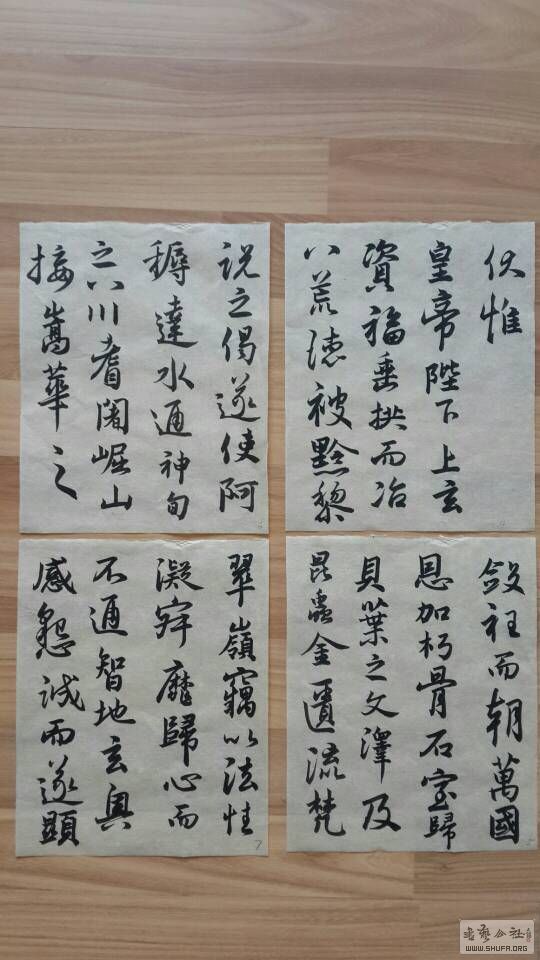 伏惟
皇帝陛下上玄
資福垂拱而治
八荒德被黔黎
斂衽而朝萬國
恩加朽骨石室歸
貝葉之文澤及
昆蟲金匱流梵
說之偈遂使阿
耨達水通神甸
之八川耆闍崛山
接嵩華之
翠嶺竊以法性
凝寂靡歸心而
不通智地玄奧
感懇誠而遂顯
7
书艺公社
WWW.SHUFA.ORG